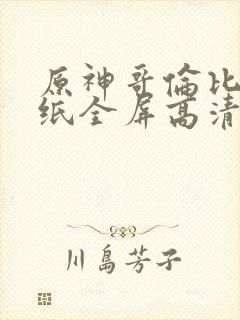 原神哥倫比
纸全屏高清
川島芳子